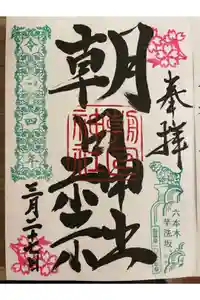 奉拝
六本木
芋洗坂
朝日神社
朝日
神社
令和四年
三月二十七日